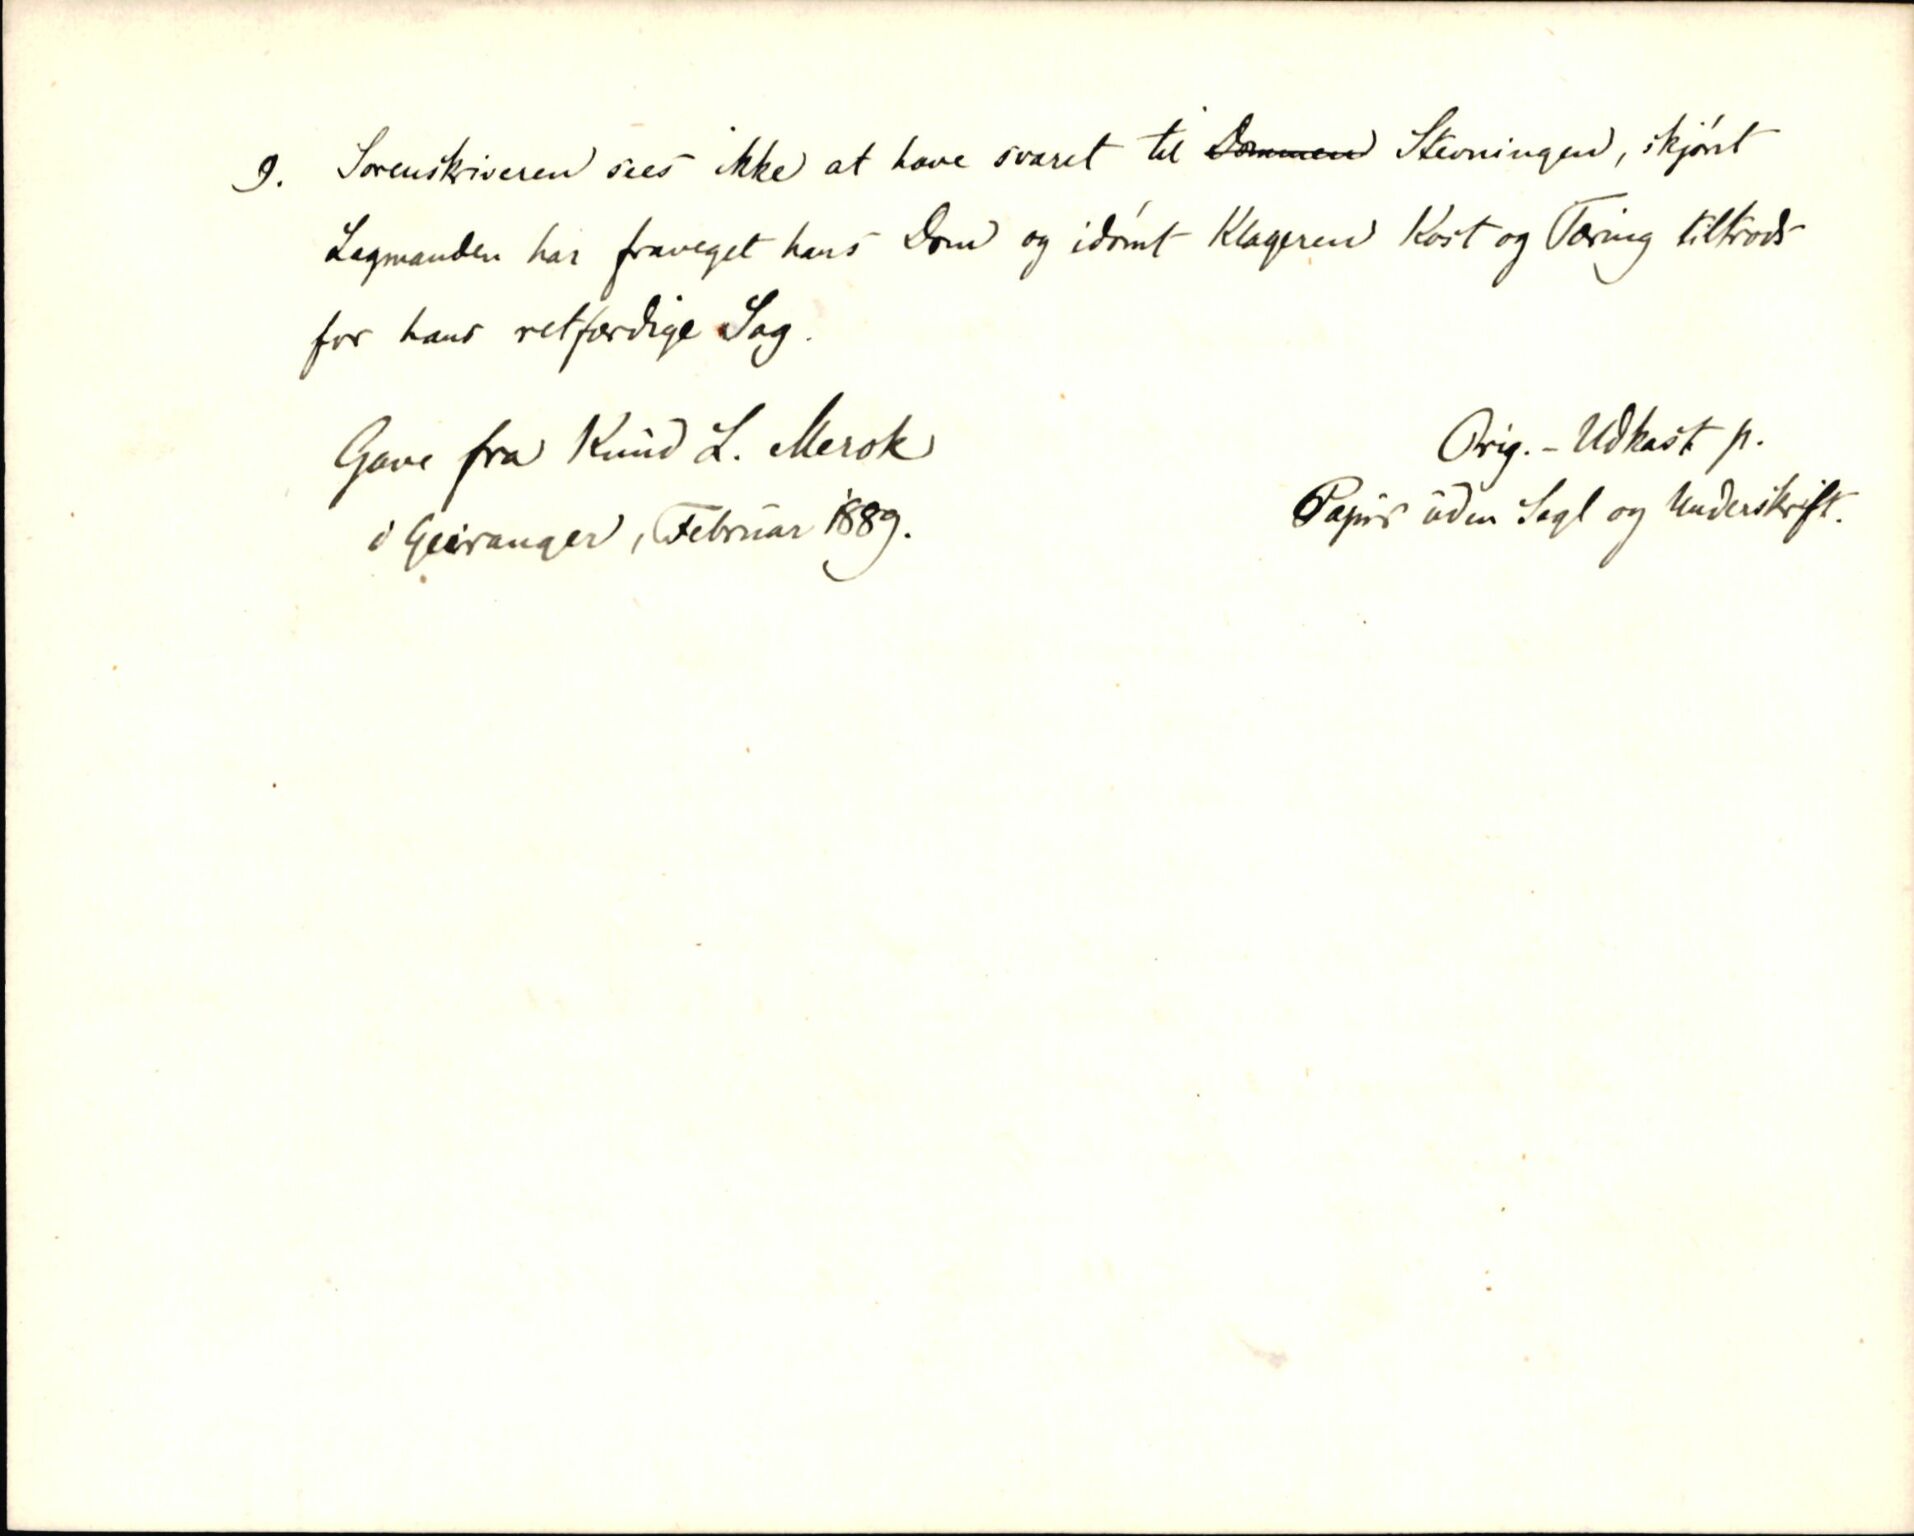 9. Sorenskriveren sees ikke at have svaret til Dommen Stevningen, skjønt
Lagmanden har fraveget hans Dom og idømt Klageren Kost og Tæring tiltrods
for hans retfærdige Sag.
Gave fra Knud L. Merok
i Geiranger, Februar 1889.
Orig. - Udkast p.
Papir uden Segl og Underskrift.